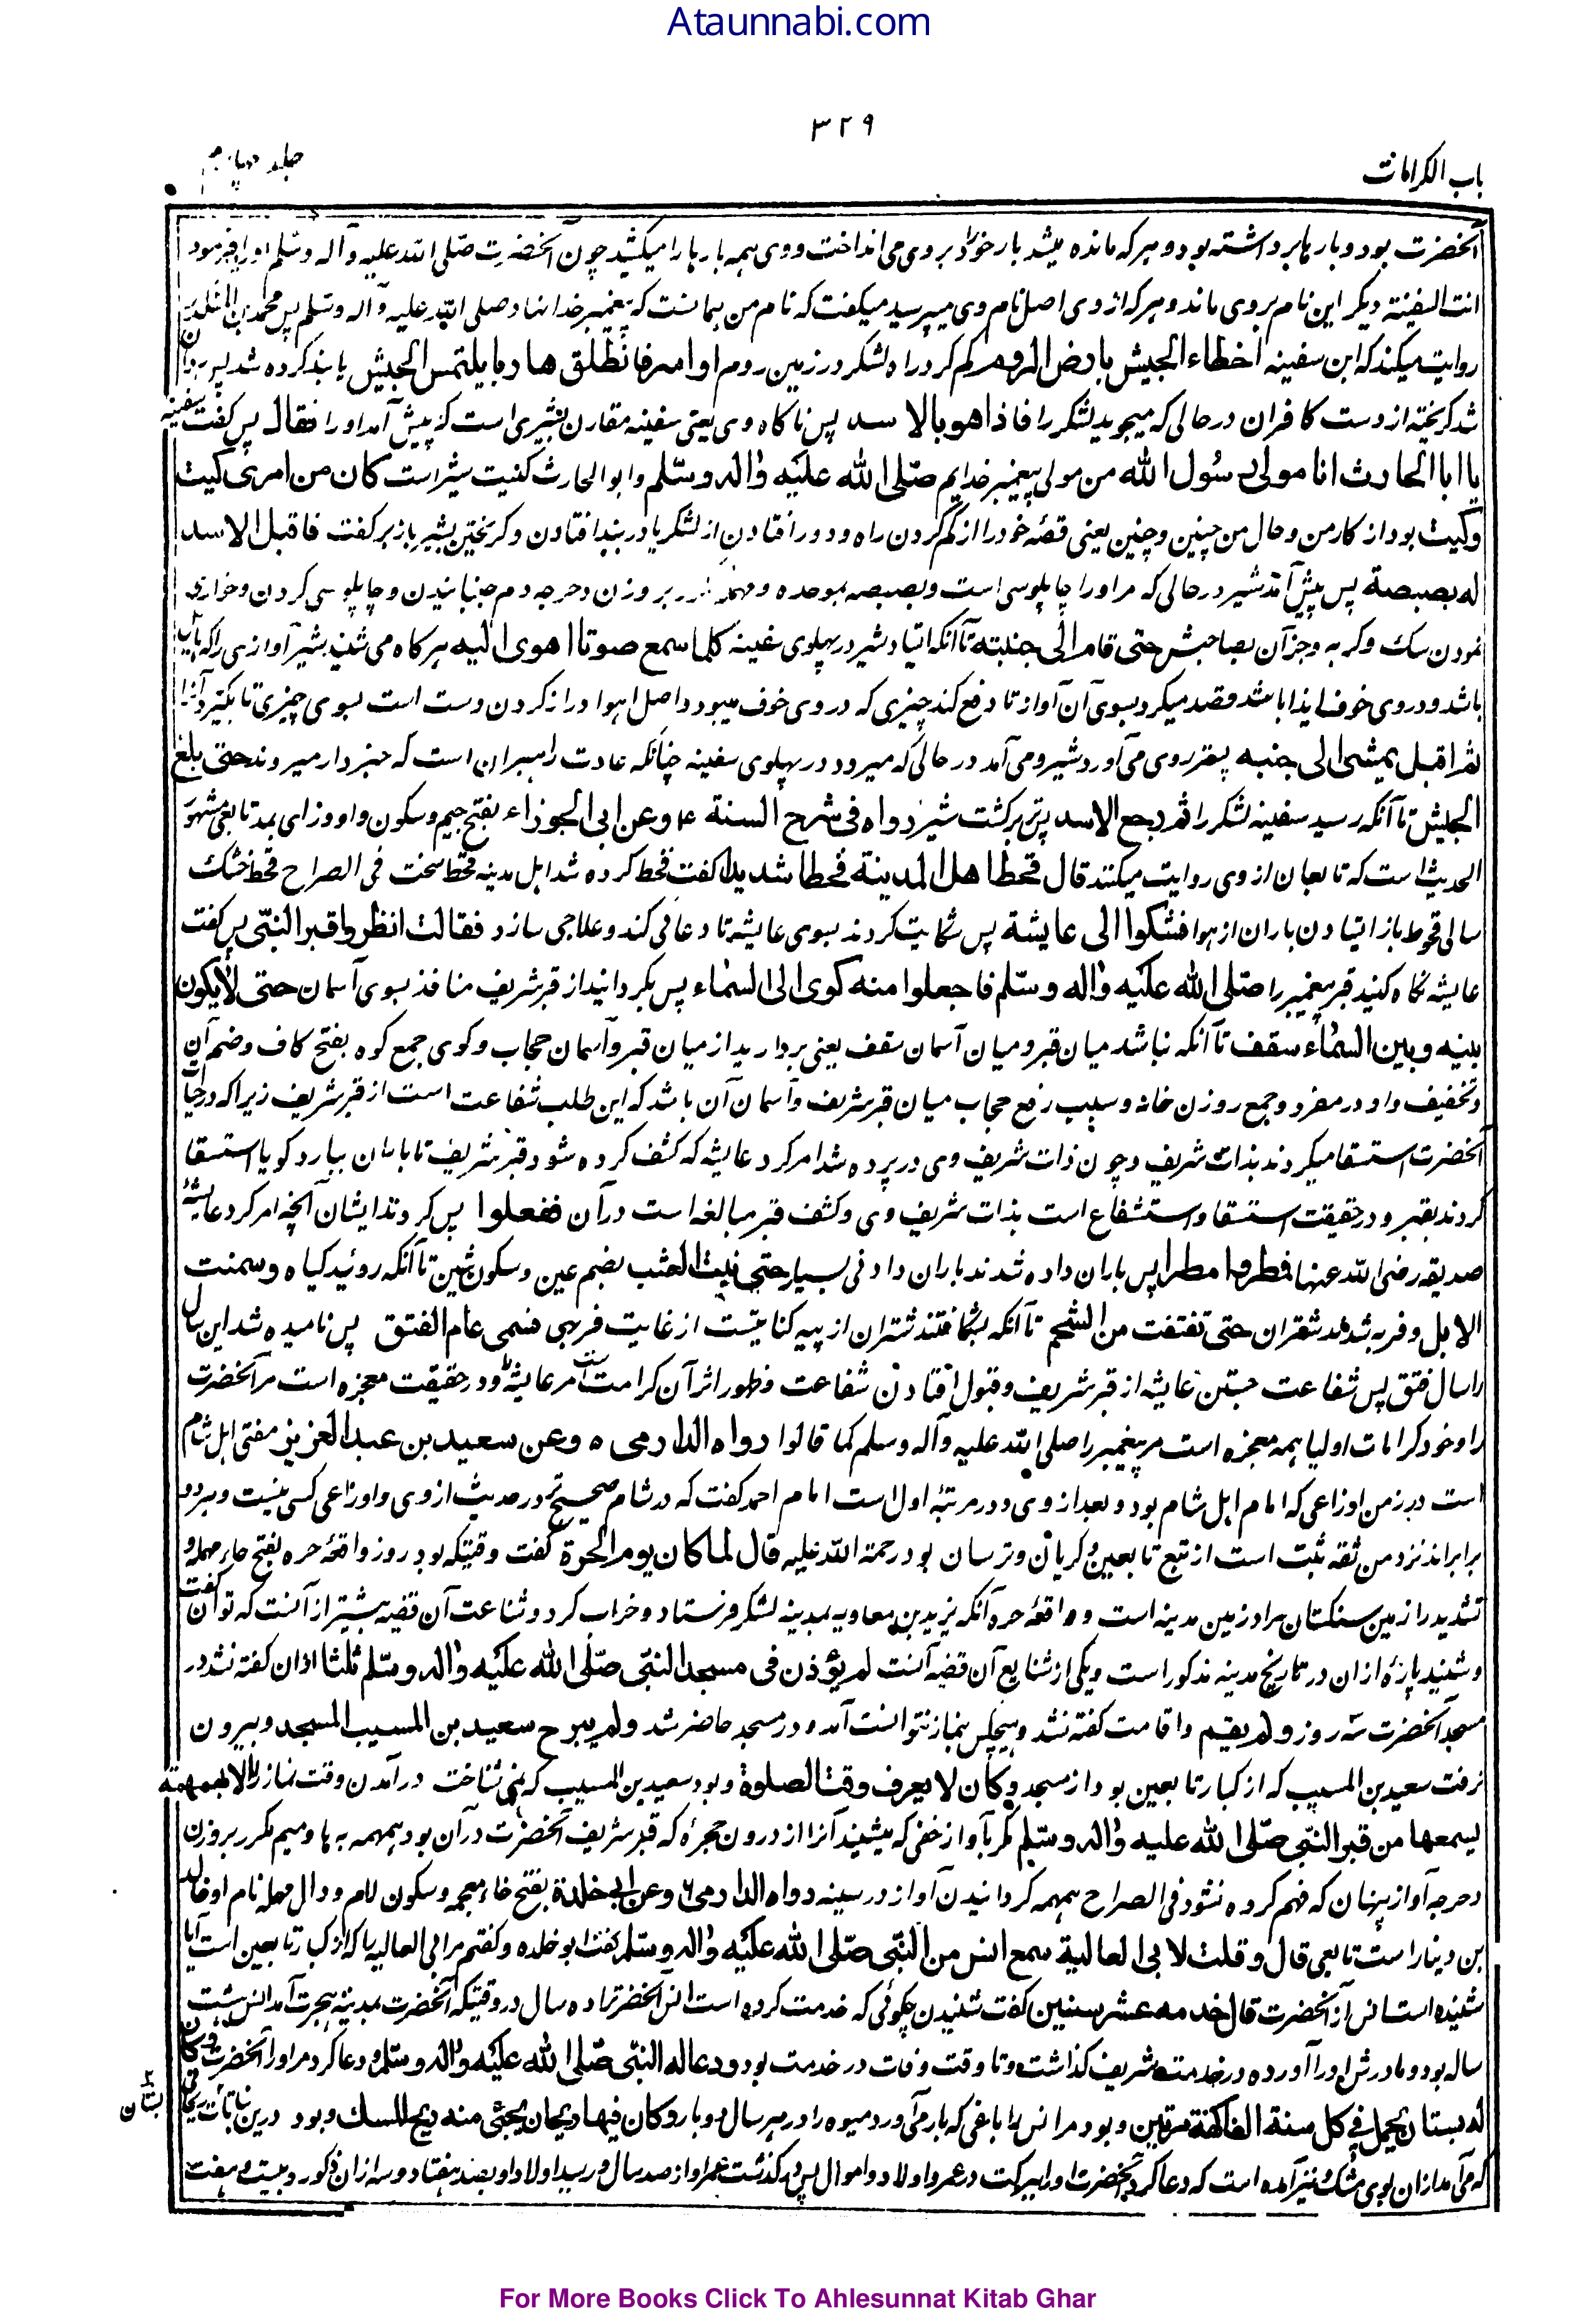 Ataunnabi.com
۳۲۹
باب الکرامات
جلد چهارم
آنحضرت بود و بارها برداشته بود و هرکه مانده میشد بار خود را بروی می انداخت و وی همه بارها را میکشید چون آنحضرت صلی الله علیه وآله وسلم او را فرمود
انت السفینة دیگر این نام بروی ماند و هرکه از وی اصل نام وی میپرسید میگفت که نام من همانست که پیغمبر خدا نهاد صلی الله علیه وآله وسلم پس محمد بن المنکدر
روایت میکند که ابن سفینه اخطاء الجیش بارض الروم گم کرد راه لشکر در زمین روم او اسر فانطلق هاربا یلتمس الجیش یا بند کرده شد پس روان
شد گریخته از دست کافران در حالی که میجوید لشکر را فاذا هو بالاسد پس ناگاه وی یعنی سفینه مقارن بشیری است که پیش آمد او را فقال پس گفت سفینه
یا ابا الحارث انا مولی رسول الله من مولی پیغمبر خدایم صلی الله علیه واله وسلم وابو الحارث کنیت شیر است کان من امری کیت
وکیت بود از کار من و حال من چنین و چنین یعنی قصّه خود را از گم کردن راه و دور افتادن از لشکر یا در بند افتادن و گریختن بشیر باز گفت فاقبل الاسد
له بصبصة پس پیش آمد شیر در حالی که مر او را چاپلوسی است و بصبصه بموحده و مهمله بر وزن دحرجه دم جنبانیدن و چاپلوسی کردن و خواری
نمودن سگ و گربه وجز آن بصاحبش حتی قام الی جنبته تا آنکه ایستاد شیر در پهلوی سفینه کلما سمع صوتا اهوی الیه هرگاه می شنید شیر آوازی را که
باشد و در وی خوف ایذا باشد قصد میکرد بسوی آن آواز تا دفع کند چیزی که در وی خوف میبود و اصل اهوا دراز کردن دست است بسوی چیزی تا بگیرد آنرا
ثم اقبل یمشی الی جنبه پستر روی می آورد شیر و می آمد در حالی که میرود در پهلوی سفینه چنانکه عادت راهبران است که خبردار میروند حتی بلغ
الجیش تا آنکه رسید سفینه لشکر را ثم رجع الاسد پستر برگشت شیر رواه فی شرح السنة ۴ وعن ابی الجوزاء بفتح جیم و سکون واو و زای بمد تابعی مشهور
الحدیث است که تابعان از وی روایت میکنند قال قحط اهل المدینة قحطا شدیدا گفت قحط کرده شد اهل مدینه قحط سخت فی الصراح قحط خشک
سالی قحوط باز ایستادن باران از هوا فشکوا الی عایشة پس شکایت کردند بسوی عایشه تا دعائی کند و علاجی سازد فقالت انظروا قبر النبی پس گفت
عایشه نگاه کنید قبر پیغمبر را صلی الله علیه واله وسلم فاجعلوا منه کوی الی السماء پس بگردانید از قبر شریف منافذ بسوی آسمان حتی لا یکون
بینه وبین السماء سقف تا آنکه نباشد میان قبر و میان آسمان سقف یعنی بردارید از میان قبر و آسمان حجاب و کوی جمع کوه بفتح کاف و ضم آن
وتخفیف واو در مفرد و جمع روزن خانه و سبب رفع حجاب میان قبر شریف و آسمان آن باشد که این طلب شفاعت است از قبر شریف زیرا که در حیات
آنحضرت استسقا میکردند بذات شریف و چون ذات شریف وی در پرده شد امر کرد عایشه که کشف کرده شود قبر شریف تا باران ببارد گویا استسقا
کردند بقبر و در حقیقت استسقا و استشفاع است بذات شریف وی و کشف قبر مبالغه است در آن ففعلوا پس کردند ایشان آنچه امر کرد عایشهٔ
صدیقه رضی الله عنها فمطروا مطرا پس باران داده شدند باران دادنی بسیار حتی نبت العشب بضم عین و سکون شین تا آنکه روئید گیاه وسمنت
الابل و فربه شدند شتران حتی تفتقت من الشحم تا آنکه بشگافتند شتران از پیه کنایتست از غایت فربهی فسمی عام الفتق پس نامیده شد این سال
را سال فتق پس شفاعت جستن عایشه از قبر شریف و قبول افتادن شفاعت و ظهور اثر آن کرامت است مر عایشه را و در حقیقت معجزه است مر آنحضرت
را و خود کرامات اولیا همه معجزه است مر پیغمبر را صلی الله علیه وآله وسلم کما قالوا رواه الدارمی ۵ وعن سعید بن عبد العزیز مفتی اهل شام
است در زمن اوزاعی که امام اهل شام بود و بعد از وی و در مرتبهٔ اول است امام احمد گفت که در شام صحیح تر در حدیث از وی و اوزاعی کسی نیست و هر دو
برابراند نزد من ثقه ثبت است از تبع تابعین و گریان و ترسان بود رحمة الله علیه قال لما کان یوم الحرة گفت وقتیکه بود روز واقعهٔ حره بفتح حاء مهمله و
تشدید را زمین سنگستان مراد زمین مدینه است و واقعهٔ حره آنکه یزید بن معاویه بمدینه لشکر فرستاد و خراب کرد و شناعت آن قضیه بیشتر از آنست که توان گفت
و شنید پارهٔ ازان در تاریخ مدینه مذکور است و یکی از شنایع آن قضیه آنست لم یؤذن فی مسجد النبی صلی الله علیه واله وسلم ثلثا اذان گفته نشد در
مسجد آنحضرت سه روز ولم یقم و اقامت گفته نشد و هیچکس بنماز نتوانست آمد و در مسجد حاضر شد ولم یبرح سعید بن المسیب المسجد و بیرون
نرفت سعید بن المسیب که از کبار تابعین بود از مسجد وکان لا یعرف وقت الصلوة و بود سعید بن المسیب که نمی شناخت درآمدن وقت نماز را الا بهمهمة
یسمعها من قبر النبی صلی الله علیه واله وسلم مگر بآواز خفی که میشنید آنرا از درون حجرهٔ که قبر شریف آنحضرت در آن بود همهمه به ها و میم مکرر بروزن
دحرجه آواز پنهان که فهم کرده نشود فی الصراح همهمه گردانیدن آواز در سینه رواه الدارمی ۶ وعن ابی خلدة بفتح خاء معجمه و سکون لام و دال مهمله نام او خالد
بن دینار است تابعی قال قلت لابی العالیة سمع انس من النبی صلی الله علیه واله وسلم گفت ابو خلده و گفتم مر ابی العالیه را که از کبار تابعین است آیا
شنیده است انس از آنحضرت قال خدمه عشر سنین گفت شنیدن چگوئی که خدمت کرده است انس آنحضرت را ده سال در وقتیکه آنحضرت بمدینه بهجرت آمد انس هشت
ساله بود و مادرش او را آورده در خدمت شریف گذاشت و تا وقت وفات در خدمت بود ودعا له النبی صلی الله علیه واله وسلم و دعا کرد مر او را آنحضرت وکان
له بستان یحمل فی کل سنة الفاکهة مرتین و بود مر انس را باغی که بار می آورد میوه را در هر سال دو بار وکان فیها ریحان یجئ منه ریح المسک و بود درین
بستان
که می آمد ازان بوی مشک و نیز آمده است که دعا کرد آنحضرت او را ببرکت در عمر و اولاد و اموال پس در گذشت عمر او از صد سال و رسید اولاد او بصد هفتاد و سه ازان ذکور و بیست و هفت
For More Books Click To Ahlesunnat Kitab Ghar